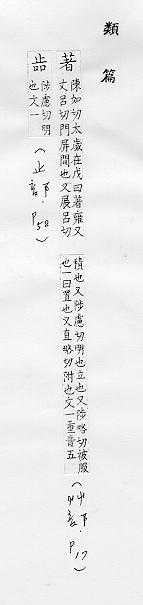 類篇
著 陳如切太歲在戊曰著雍又
丈呂切門屏閒也又展呂切
積也又陟慮切明也立也又陟略切被服
也一曰置也又直略切附也文一重音五
(艸部下.P17)
陟慮切明
也文一
(止部下.P52)